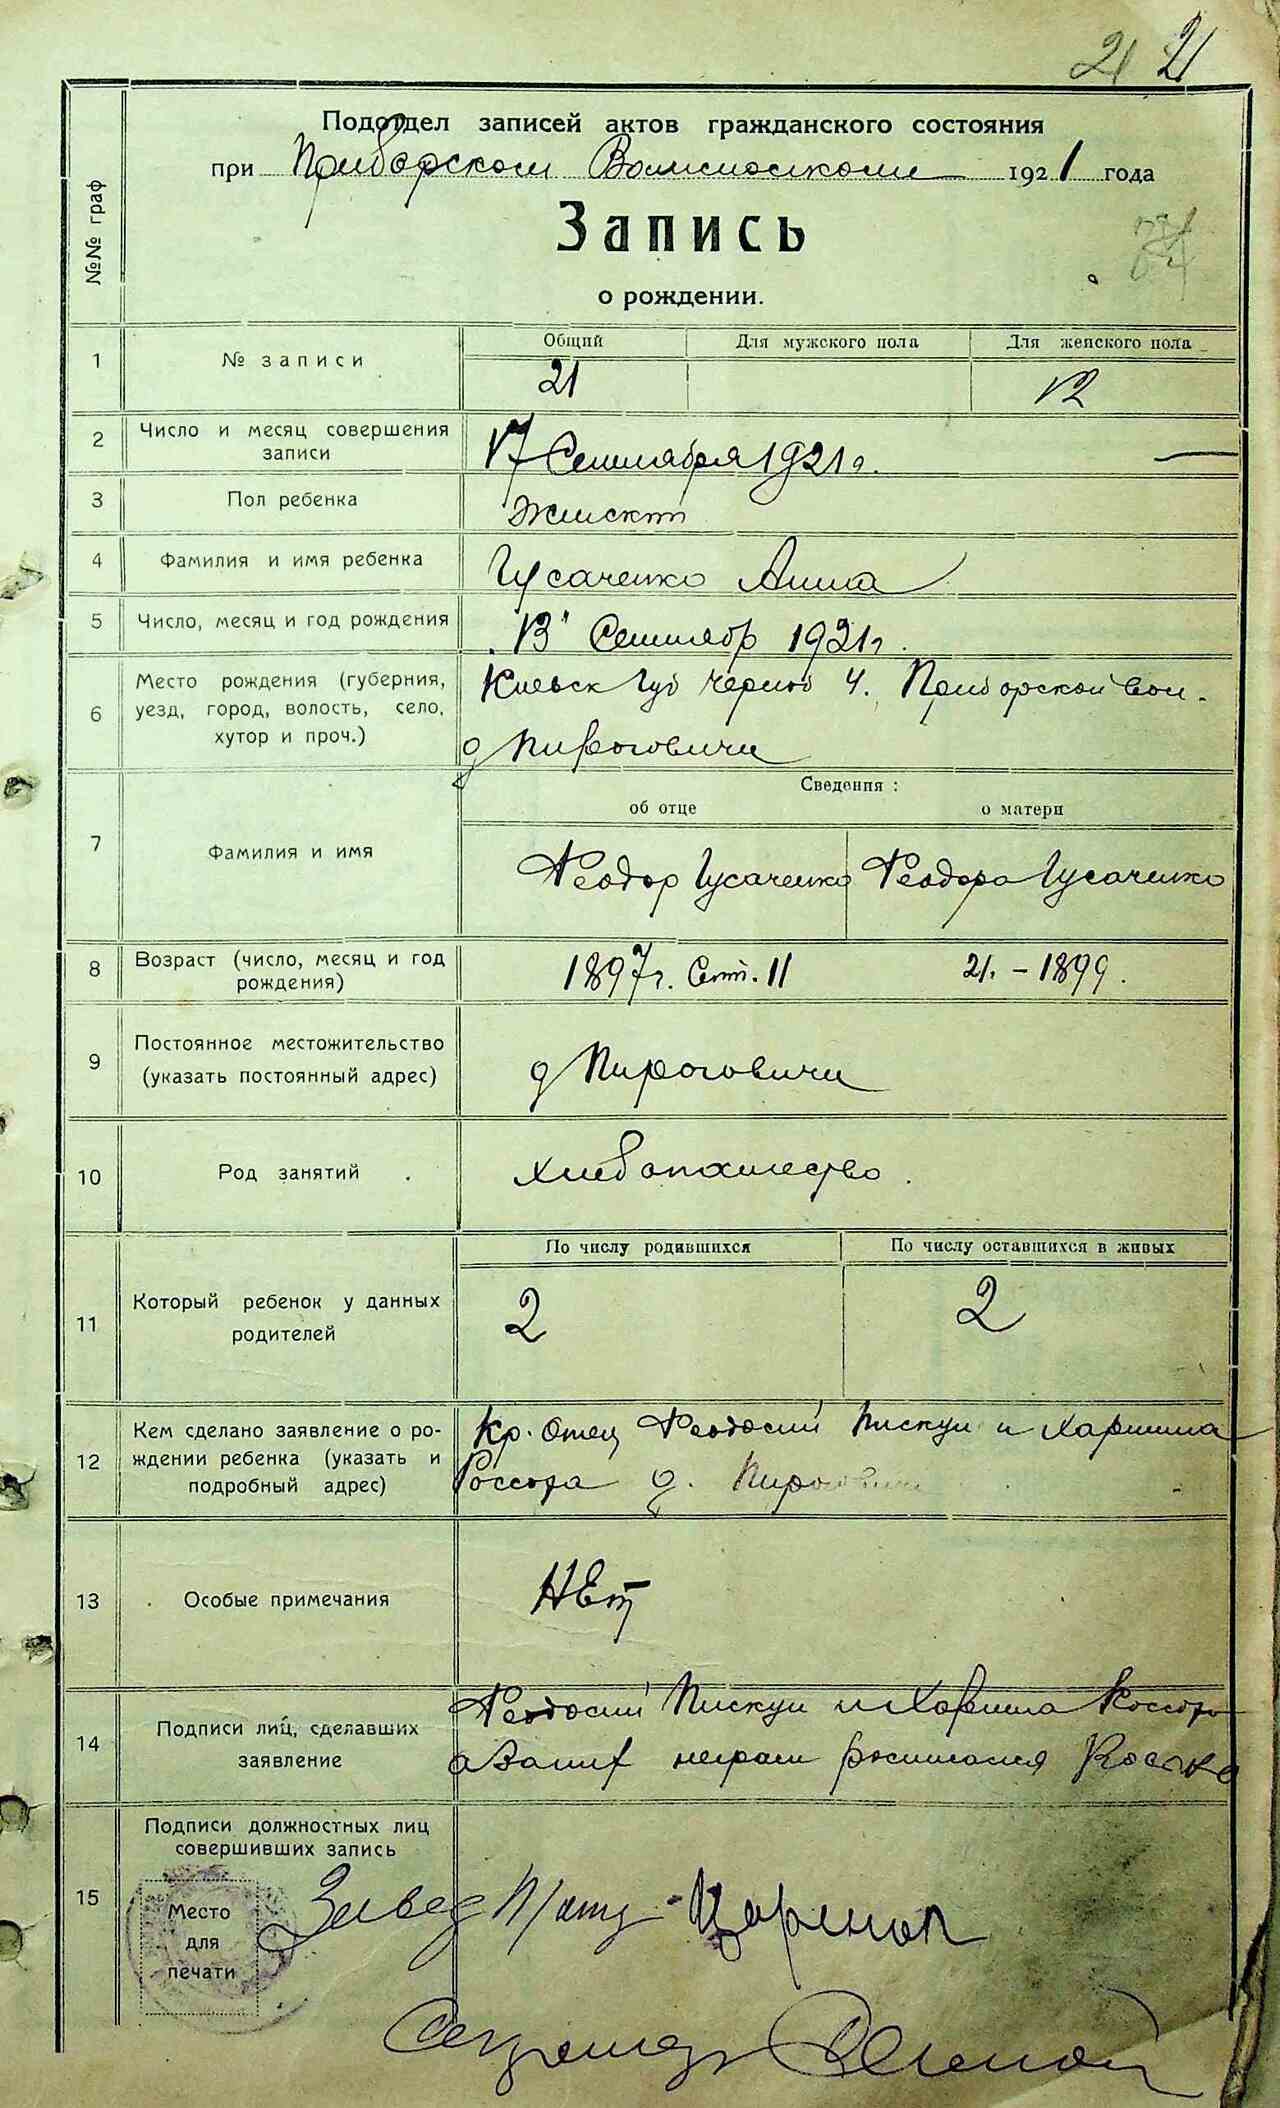 21 21
Подотдел записей актов гражданского состояния
при Приборском Волисполкоме 1921 года
Запись
о рождении.
№№ граф
1 № записи
Общий Для мужского пола Для женского пола
21 12
2 Число и месяц совершения записи
17 Сентября 1921 г.
3 Пол ребенка
4 Фамилия и имя ребенка
Гусаченко Анна
5 Число, месяц и год рождения
"13" Сентябр 1921 г.
6 Место рождения (губерния,
уезд, город, волость, село,
хутор и проч.)
Киевск Губ Черноб У. Приборской вол.
д Пироговичи
Сведения:
об отце о матери
7 Фамилия и имя
Феодор Гусаченко Феодора Гусаченко
8 Возраст (число, месяц и год
рождения)
1897 г. Сент. 11 21. - 1899.
9 Постоянное местожительство
(указать постоянный адрес)
д Пироговичи
10 Род занятий
хлебопашество.
По числу родившихся По числу оставшихся в живых
11 Который ребенок у данных
родителей
2 2
12 Кем сделано заявление о ро-
ждении ребенка (указать и
подробный адрес)
Кр. Отец Феодосий Пискун и Харитина
д. Пироговичи
13 Особые примечания
НЕт
14 Подписи лиц, сделавших
заявление
Феодосий Пискун и
а за них неграм росписался
Подписи должностных лиц
совершивших запись
15
Место
для
печати
Завед П/отд
Секретарь